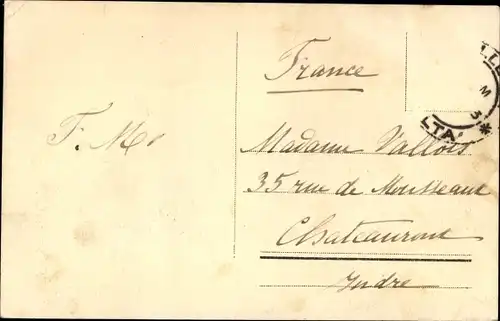 France
F. M.
Madame Vallois
35 rue de Mousseaux
Chateauroux
Indre
LTA